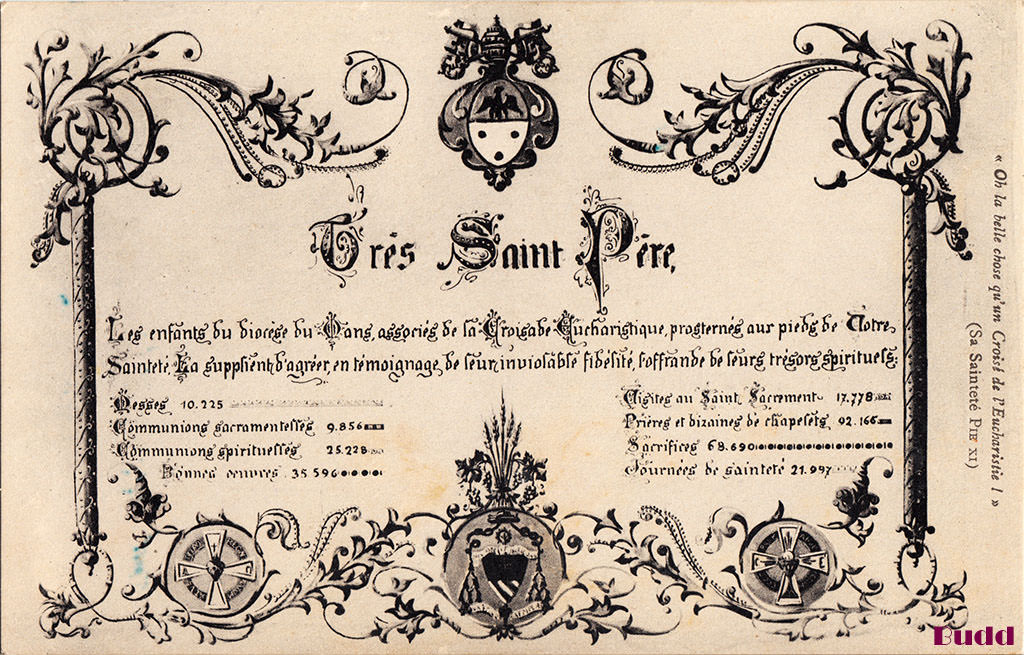 Très Saint Père,
Les enfants du diocèse du Mans, associés de la Croisade Eucharistique, prosternés aux pieds de Votre
Sainteté, La supplient d'agréer, en témoignage de leur inviolable fidélité, l'offrande de leurs trésors spirituels:
Messes 10.225
Communions sacramentelles 9.856
Communions spirituelles 25.228
Bonnes oeuvres 35.596
Visites au Saint Sacrement 17.778
Prières et dizaines de chapelets 92.166
Sacrifices 68.690
Journées de sainteté 21.997
« Oh la belle chose qu'un Croisé de l'Eucharistie ! »
(Sa Sainteté PIE XI)
Budd